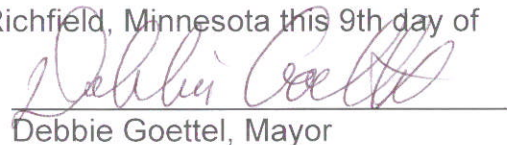 Richfield, Minnesota this 9th day of
Debbie Goettel
Debbie Goettel, Mayor